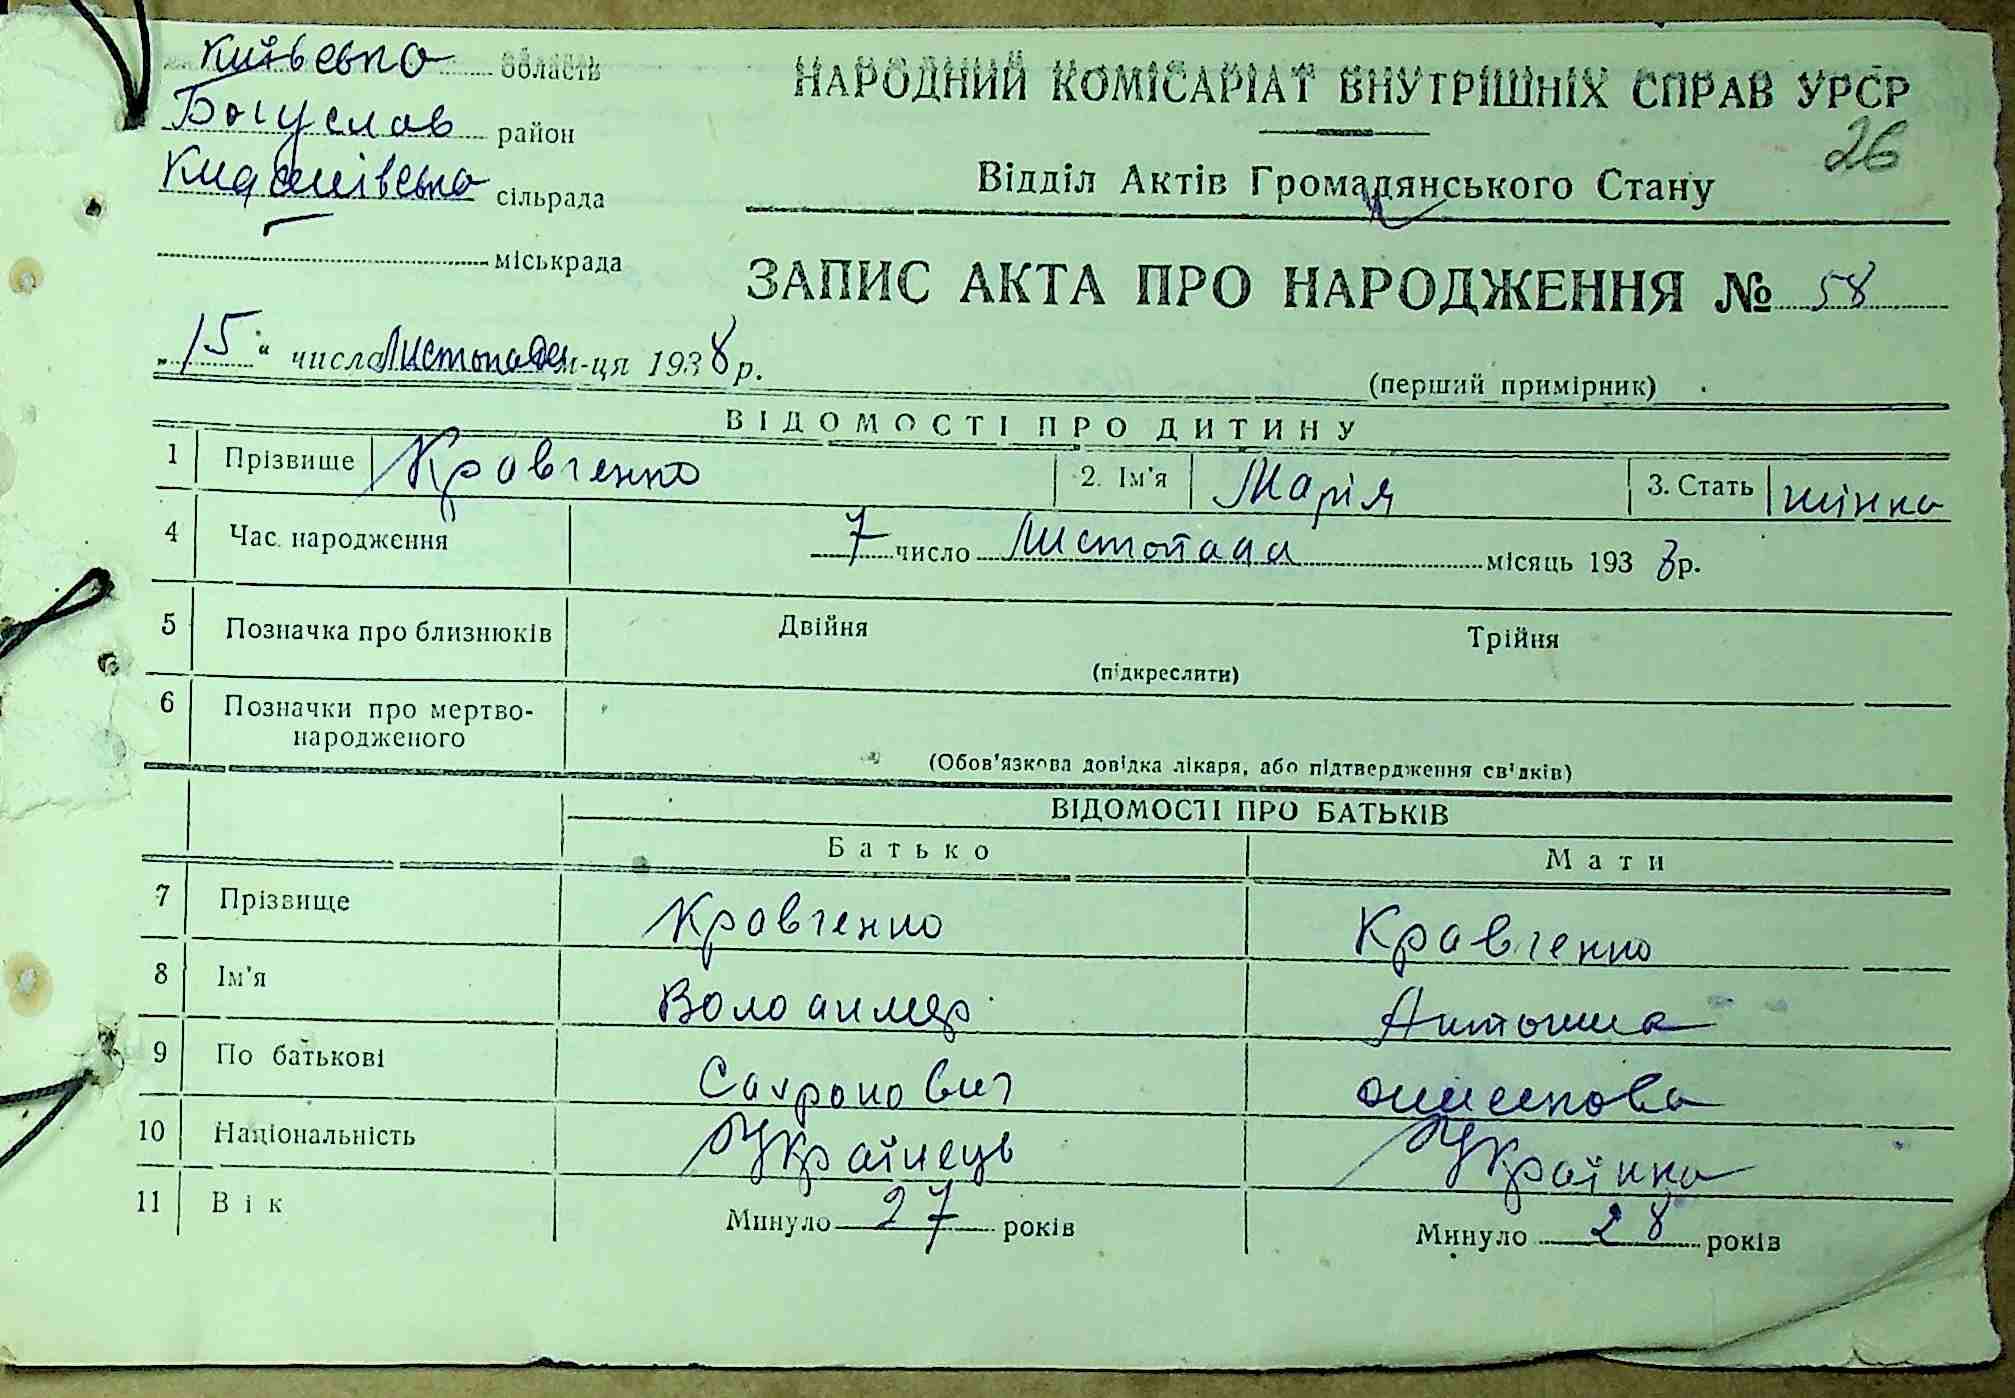 Київська область
НАРОДНИЙ КОМІСАРІАТ ВНУТРІШНІХ СПРАВ УРСР
Богуслав район
26
сільрада
Відділ Актів Громадянського Стану
міськрада
ЗАПИС АКТА ПРО НАРОДЖЕННЯ № 58
„15“ числа Листопада м-ця 1938 р.
(перший примірник)
ВІДОМОСТІ ПРО ДИТИНУ
1 Прізвище Кравченко 2. Ім'я Марія 3. Стать жінка
4 Час народження 7 число Листопада місяць 1938 р.
5 Позначка про близнюків Двійня Трійня
(підкреслити)
6 Позначки про мертво-
народженого
(Обов'язкова довідка лікаря, або підтвердження свідків)
ВІДОМОСТІ ПРО БАТЬКІВ
Батько Мати
7 Прізвище Кравченко Кравченко
8 Ім'я Володимер
9 По батькові
10 Національність Українець Українка
11 Вік Минуло 27 років Минуло 28 років